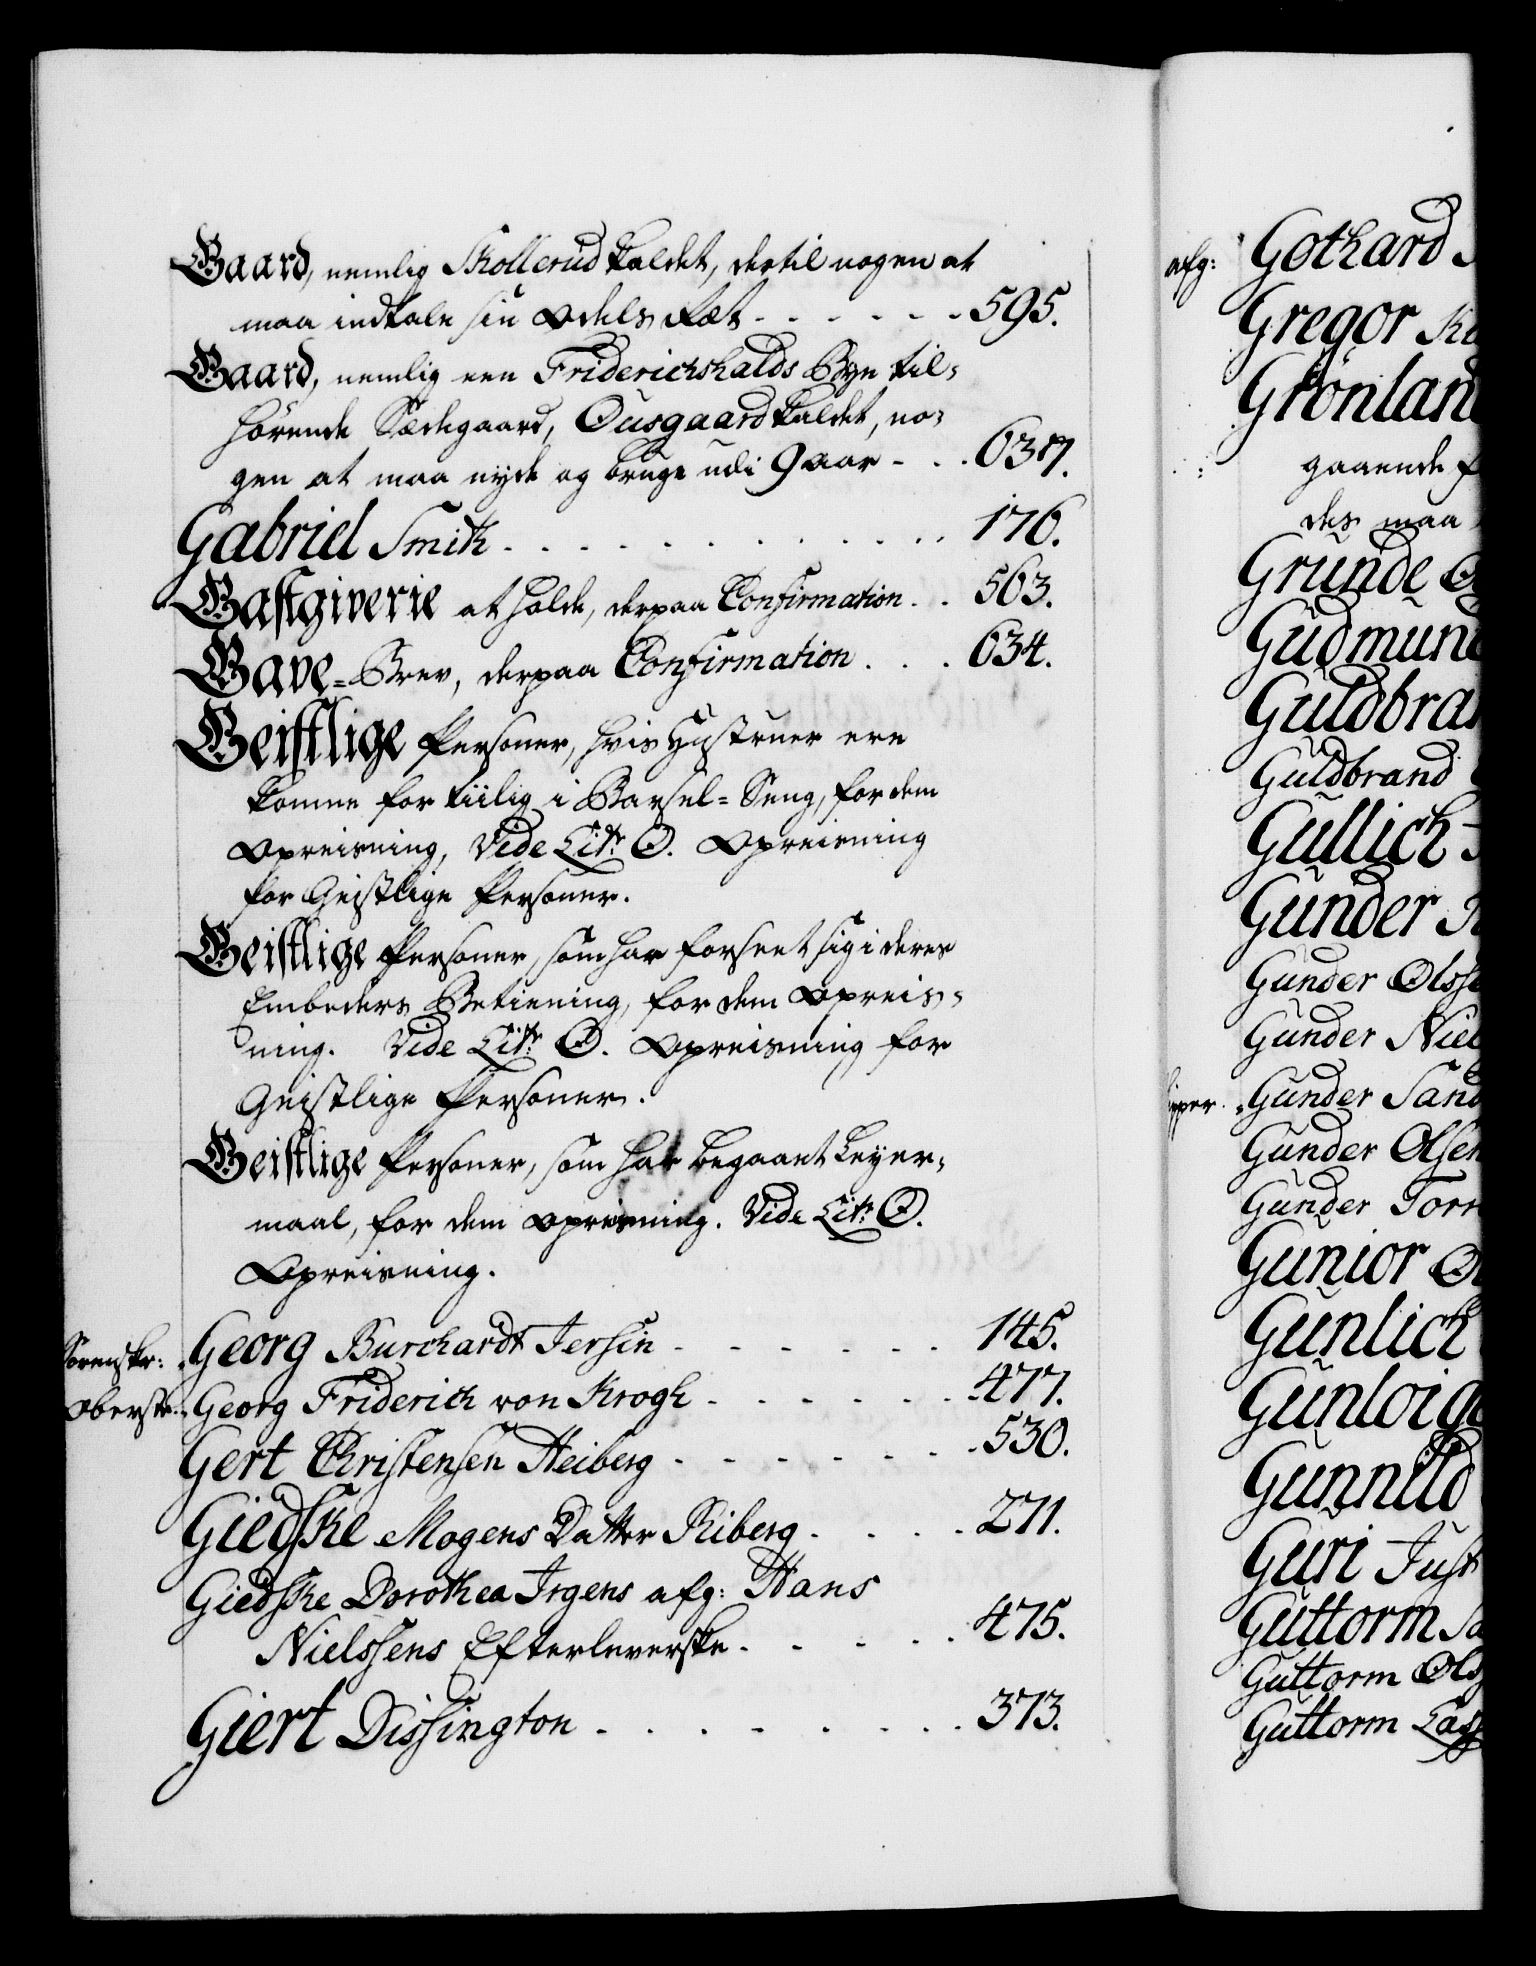 Gaard, nemlig Skollerud kaldet, dertil nogen at
maa indtale sin Odels Ræt - - - - - - 595.
Gaard, nemlig een Friderichshalds Bye til-
hørende Sædegaard, Ousgaard kaldet, no-
gen at maa nyde og bruge udi 9 aar - - - 637.
Gabriel Smith . . . . . . . . . . . 176.
Gastgiverie at holde, derpaa Confirmation . . 563.
Gave-Brev, derpaa Confirmation . . . 634.
Geistlige Personer, hvis Hustruer ere
komne for tiilig i Barsel-Seng, for dem
Opreisning, Vide Litr. O. Opreisning
for Geistlige Personer.
Geistlige Personer, som har forseet sig i deres
Embeders Betiening, for dem Opreis-
ning. Vide Litr. O. Opreisning for
Geistlige Personer.
Geistlige Personer, som har begaaet Leyer-
maal, for dem Opreisning. Vide Litr. O.
Opreisning.
Sorenskr: Georg Burchardt Jersin - - - - - - 145.
Oberste. Georg Friderich von Krogh - - - - - - 477.
Gert Christensen Heiberg - - - - - - 530.
Giedske Mogens Datter Riberg . . . . 271.
Giedske Dorothea Irgens afg: Hans
Nielssens Efterleverske . . . . . 475.
Giert Dissington . . . . . . . . 373.
afg: Gothard
Gregor
Grønland
gaaende
des maa
Grunde
Gudmund
Guldbran
Guldbrand
Gullich
Gunder
Gunder Olsse
Gunder Niel
Gunder Sand
Gunder Olsen
Gunder Torr
Gunior
Gunlich
Gunloig
Gunnild
Guri Just
Guttorm
Guttorm Ols
Guttorm Lass